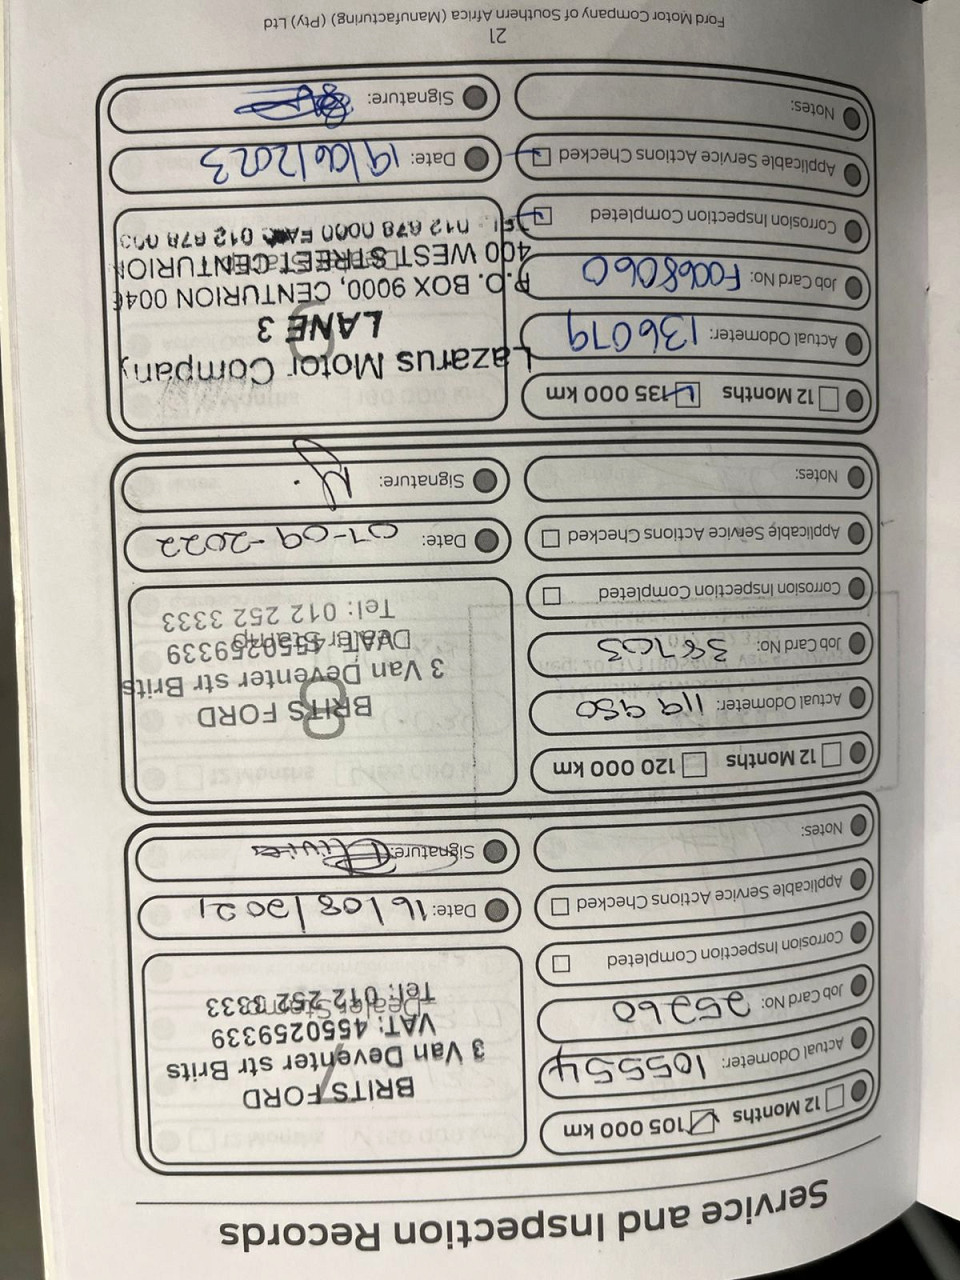 Service and Inspection Records
12 Months 105 000 km
Actual Odometer: 105554
Job Card No: 25260
Corrosion Inspection Completed
Applicable Service Actions Checked
Notes:
7
BRITS FORD
3 Van Deventer str Brits
VAT: 4550259339
Dealer Stamp
Tel: 012 252 3333
Date: 16/08/2021
Signature:
12 Months 120 000 km
Actual Odometer: 119 950
Job Card No: 38703
Corrosion Inspection Completed
Applicable Service Actions Checked
Notes:
8
BRITS FORD
3 Van Deventer str Brits
VAT: 4550259339
Dealer Stamp
Tel: 012 252 3333
Date: 07-09-2022
Signature:
12 Months 135 000 km
Actual Odometer: 136079
Job Card No: F0068060
Corrosion Inspection Completed
Applicable Service Actions Checked
Notes:
9
Lazarus Motor Company
LANE 3
P.O. BOX 9000, CENTURION 0046
400 WEST STREET CENTURION
Dealer Stamp
TEL: 012 678 0000 FAX 012 678
Date: 19/06/2023
Signature:
21
Ford Motor Company of Southern Africa (Manufacturing) (Pty) Ltd